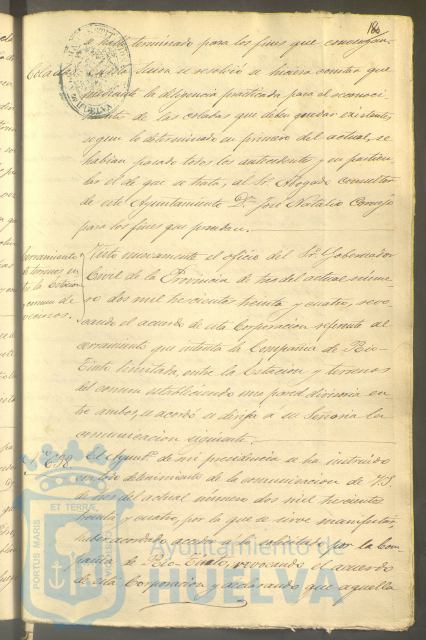 180
se halle terminado para los fines que convengan.
Colada
se resolvió se hiciera constar que
mediante la diligencia practicada para el reconoci
miento de las coladas que deben quedar existentes,
segun lo determinado en primero del actual, se
habian pasado todos los antecedentes y en particu
lar el de que se trata, al Sr. Abogado consultor
de este Ayuntamiento Dn. José Natalio Cornejo
para los fines que procedan.
Cerramiento
de terrenos en
tre la Estacion
comun de
vecinos.
Visto nuevamente el oficio del Sr. Gobernador
Civil de la Provincia de tres del actual núme
ro dos mil trescientos treinta y cuatro, revo
cando el acuerdo de esta Corporacion referente al
cerramiento que intenta la Compañia de Rio-
Tinto limitada, entre la Estacion y terrenos
del comun estableciendo una pared divisoria en
tre ambos, se acordó se dirija á su Señoria la
comunicacion siguiente.
Nº 678
El Ayuntº. de mi presidencia se ha instruido
con detenimiento de la comunicacion de V.S.
de tres del actual número dos mil trescientos
treinta y cuatro, por la que se sirve manifestar,
haber acordado acceder a lo solicitado por la Com
pañia de Rio-Tinto, revocando el acuerdo
de esta Corporacion, y declarando que aquella
HUELVA
PORTUS MARIS
ET TERRÆ
CUSTODIA
Ayuntamiento de
HUELVA